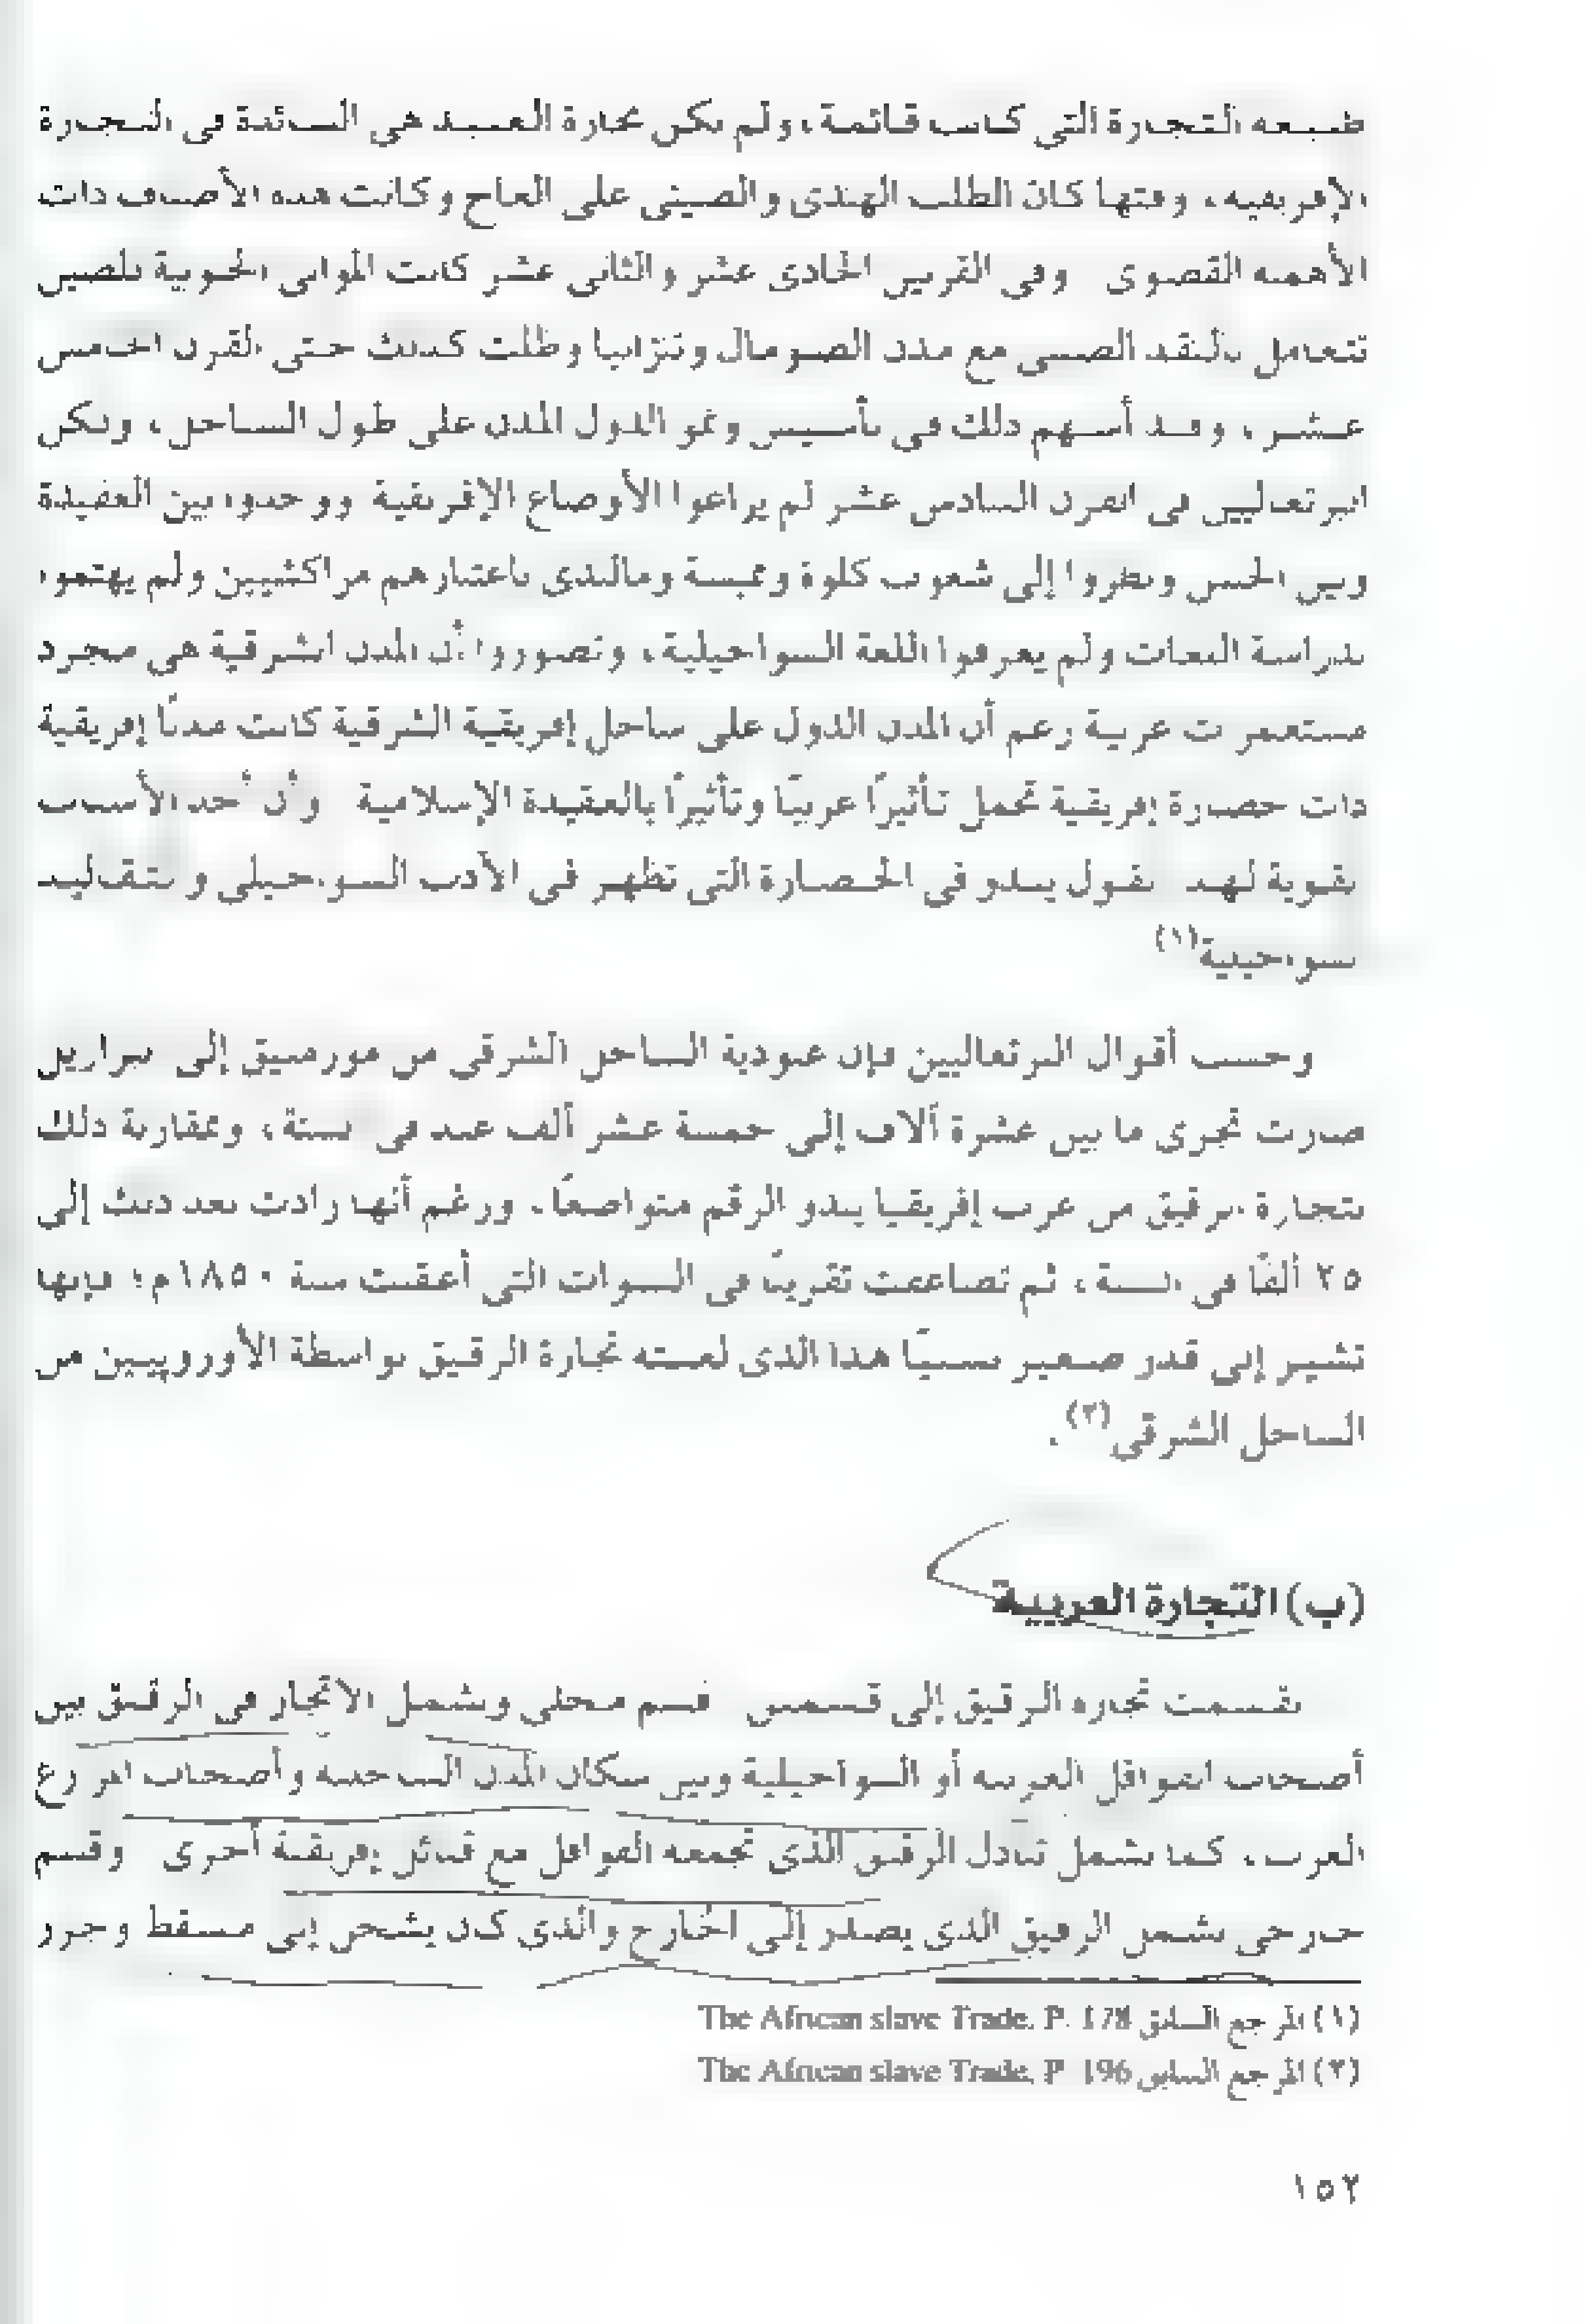 طبيعة التجارة التى كانت قائمة، ولم تكن تجارة العبيد هى السائدة فى التجارة
الإفريقية، وقتها كان الطلب الهندى والصينى على العاج وكانت هذه الأصناف ذات
الأهمية القصوى وفى القرنين الحادى عشر والثانى عشر كانت الموانى الجنوبية للصين
تتعامل بالنقد الصينى مع مدن الصومال وتنزانيا وظلت كذلك حتى القرن الخامس
عشر، وقد أسهم ذلك فى تأسيس ونمو الدول المدن على طول الساحل، ولكن
البرتغاليين فى القرن السادس عشر لم يراعوا الأوضاع الإفريقية ووحدوا بين العقيدة
وبين الجنس ونظروا إلى شعوب كلوة وممبسة ومالندى باعتبارهم مراكشيين ولم يهتموا
بدراسة اللغات ولم يعرفوا اللغة السواحيلية، وتصوروا أن المدن الشرقية هى مجرد
مستعمرات عربية رغم أن المدن الدول على ساحل إفريقية الشرقية كانت مدنًا إفريقية
ذات حضارة إفريقية تحمل تأثيرًا عربيًا وتأثيرًا بالعقيدة الإسلامية وأن أحد الأسباب
القوية لهذا القول يبدو فى الحضارة التى تظهر فى الأدب السواحيلى والتقاليد
السواحيلية(١)
وحسب أقوال البرتغاليين فإن عبودية الساحل الشرقى من موزمبيق إلى البرازيل
صارت تجرى ما بين عشرة آلاف إلى خمسة عشر ألف عبد فى السنة، وبمقارنة ذلك
بتجارة الرقيق من غرب إفريقيا يبدو الرقم متواضعًا. ورغم أنها زادت بعد ذلك إلى
٢٥ ألفًا فى السنة، ثم تضاعفت تقريبًا فى السنوات التى أعقبت سنة ١٨٥٠م؛ فإنها
تشير إلى قدر صغير نسبيًا هذا الذى لعبته تجارة الرقيق بواسطة الأوروبيين من
الساحل الشرقى(٢).
(ب) التجارة العربية
انقسمت تجارة الرقيق إلى قسمين قسم محلى ويشمل الاتجار فى الرقيق بين
أصحاب القوافل العربية أو السواحيلية وبين سكان المدن الساحلية وأصحاب المزارع
العرب، كما يشمل تبادل الرقيق الذى تجمعه القوافل مع قبائل إفريقية أخرى وقسم
خارجى يشمل الرقيق الذى يصدر إلى الخارج والذى كان يشحن إلى مسقط وجزر
(١) المرجع السابق The African slave Trade. P. 178
(٢) المرجع السابق The African slave Trade. P 196
١٥٢